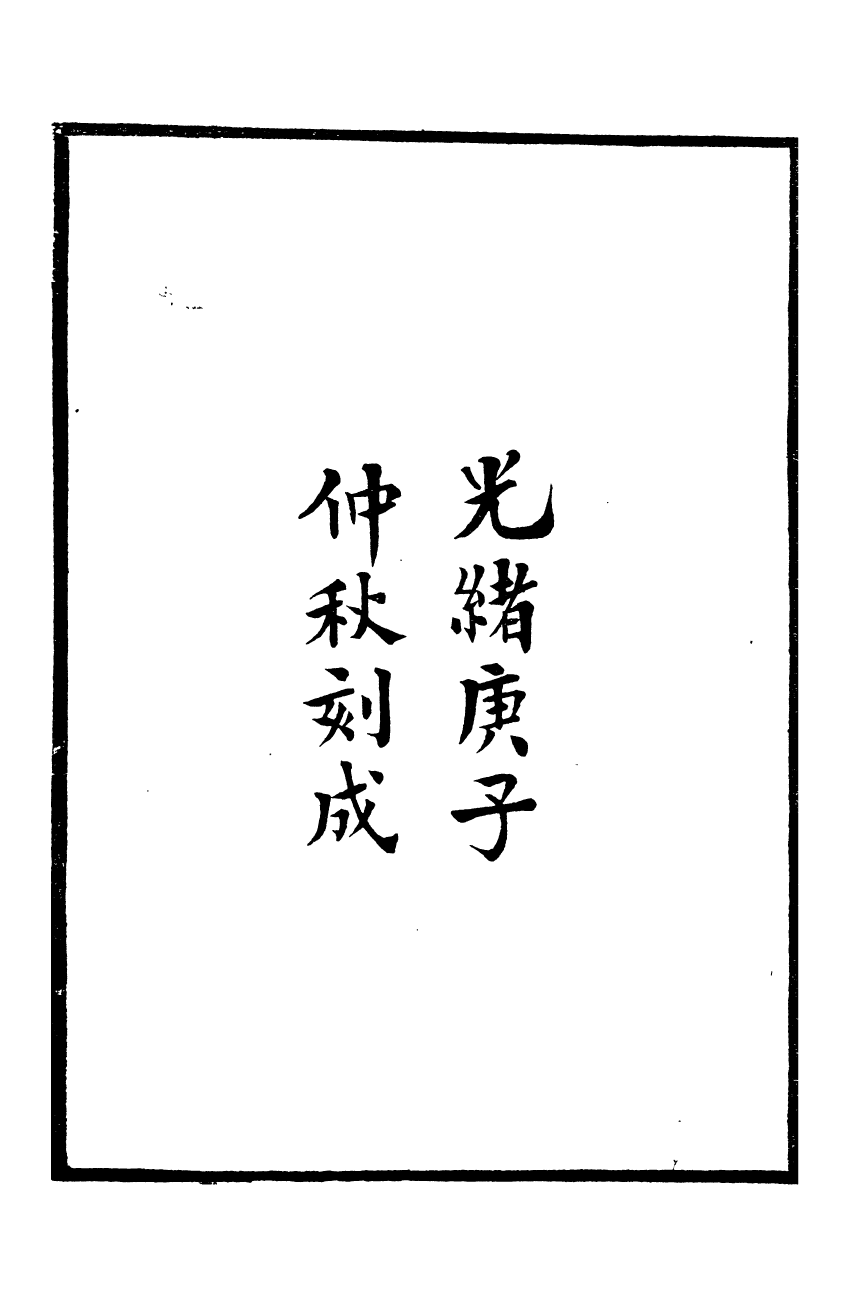 光緒庚子
仲秋刻成